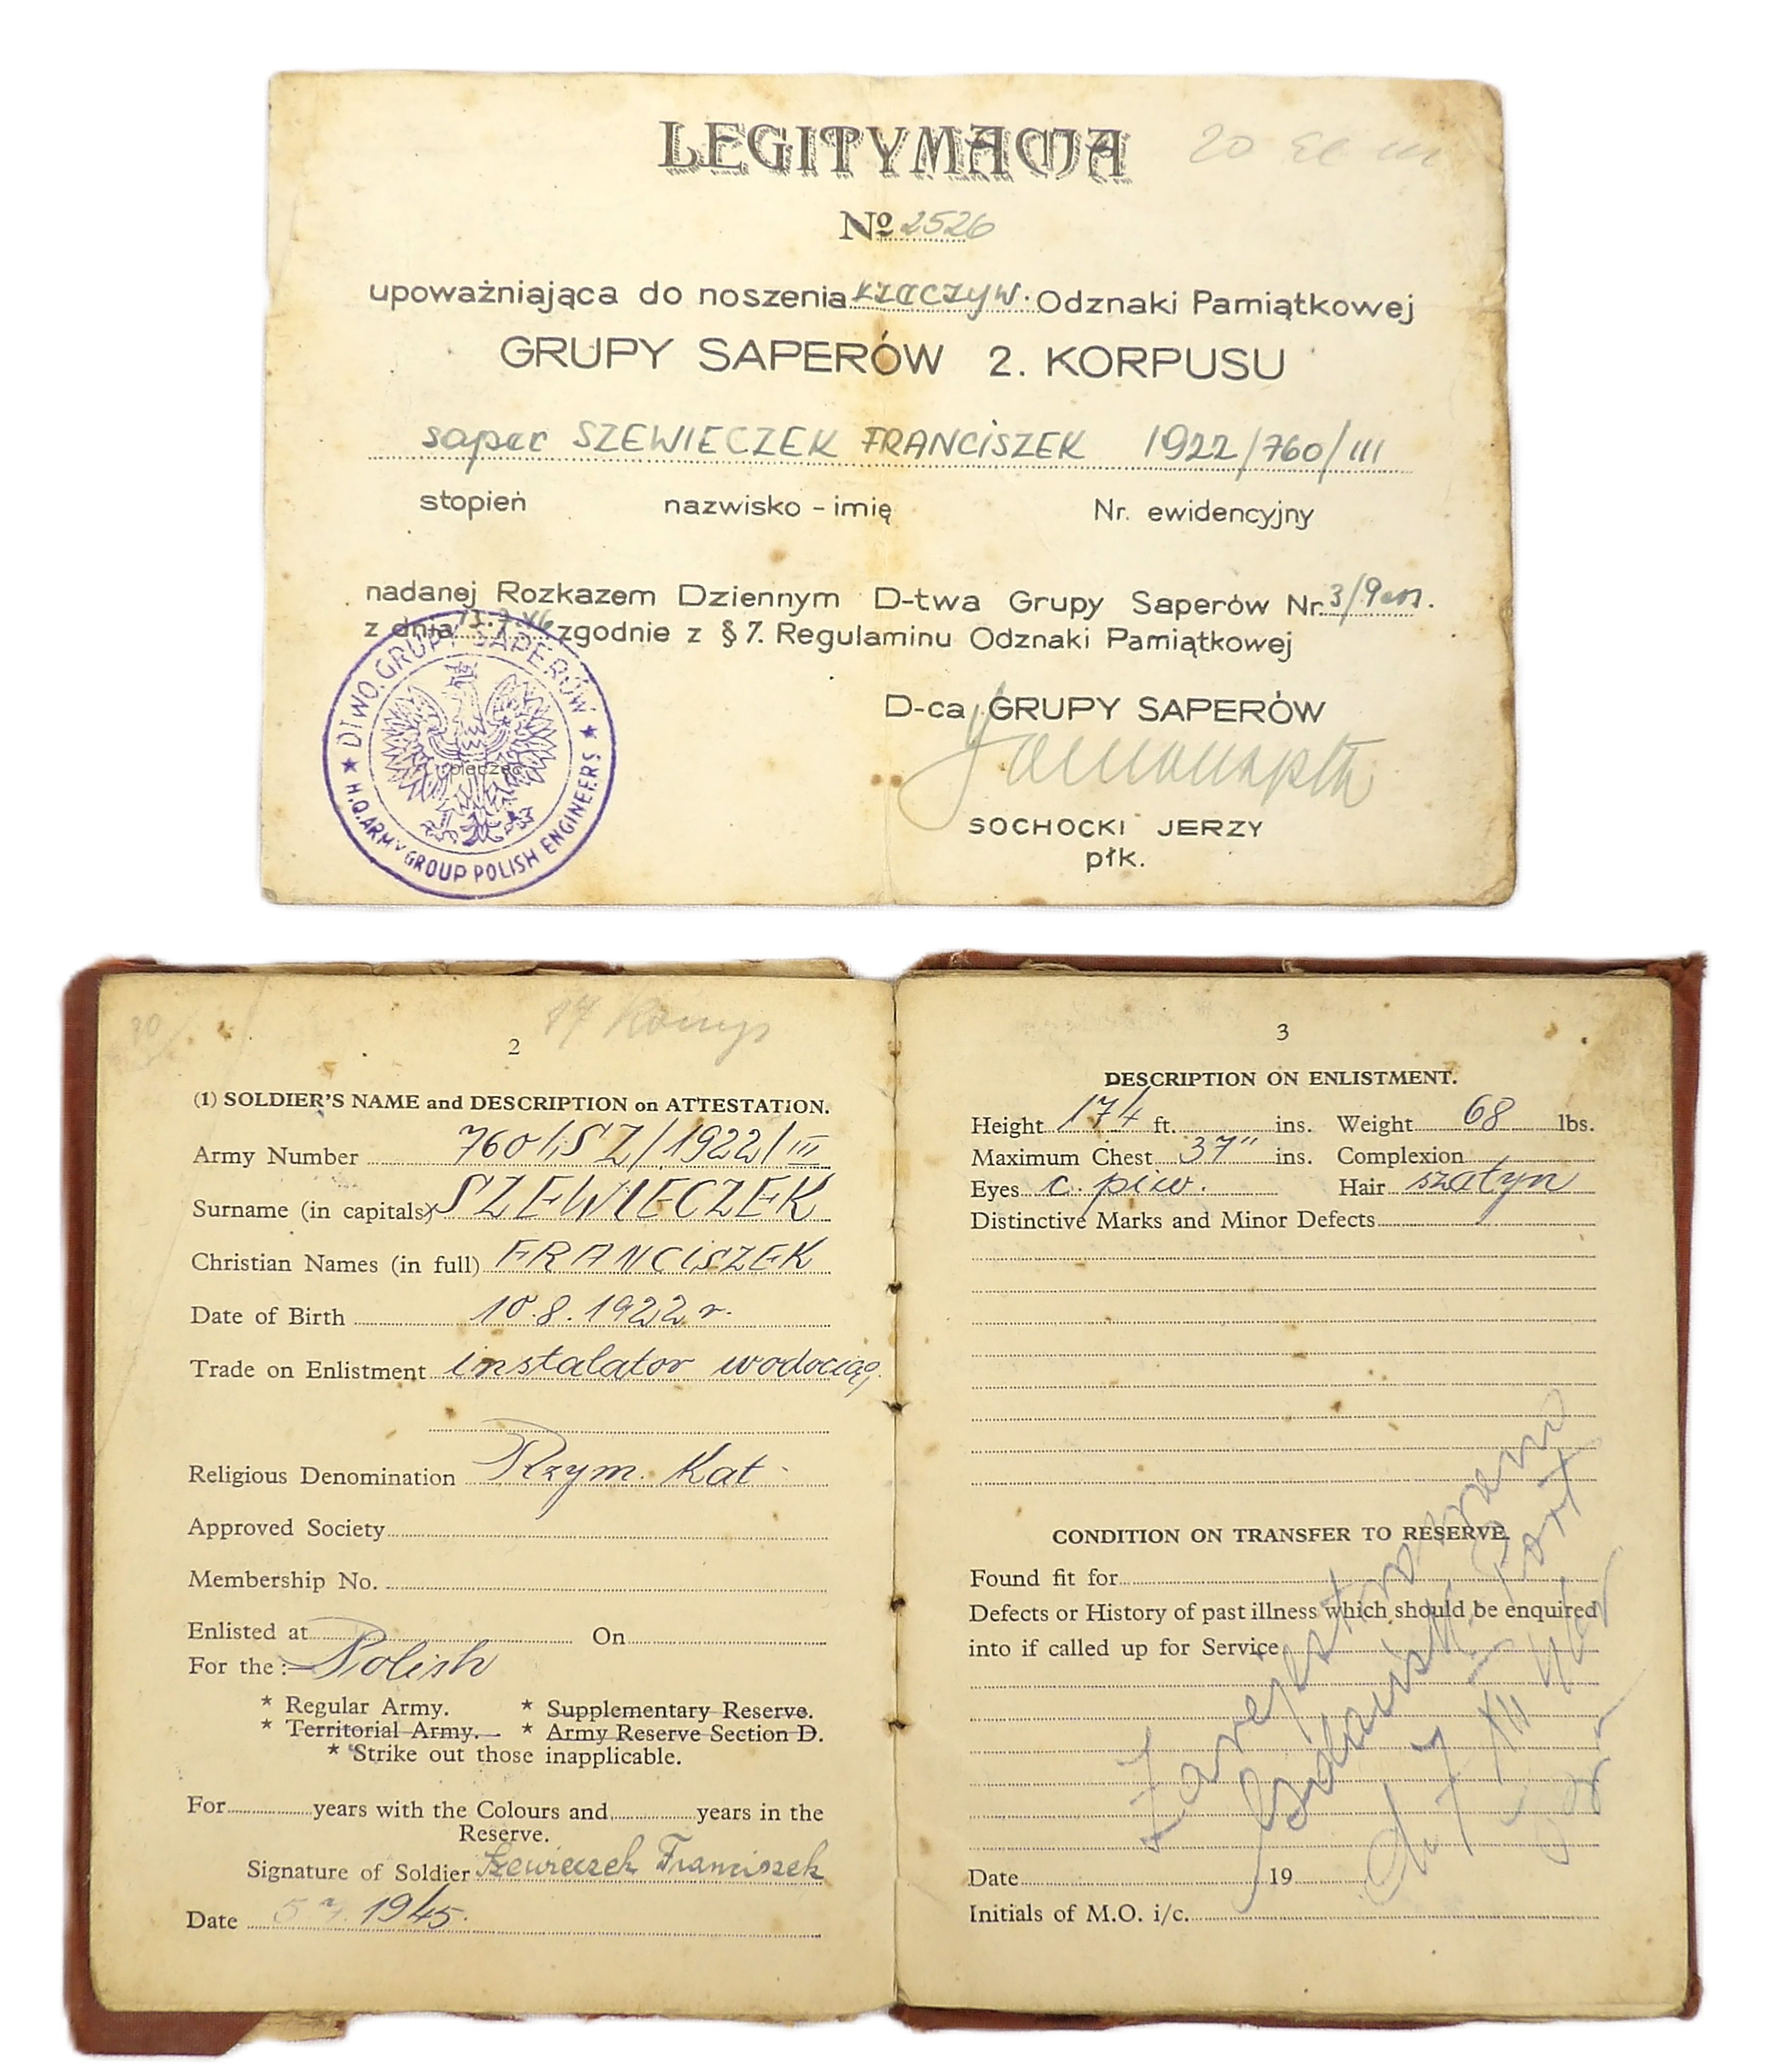 LEGITYMACJA
20
No 2526
upoważniająca do noszenia rzeczyw. Odznaki Pamiątkowej
GRUPY SAPERÓW 2. KORPUSU
saper SZEWIECZEK FRANCISZEK 1922/760/III
stopień nazwisko - imię Nr. ewidencyjny
nadanej Rozkazem Dziennym D-twa Grupy Saperów Nr. 3/9
z dnia zgodnie z § 7. Regulaminu Odznaki Pamiątkowej
D-ca GRUPY SAPERÓW
SOCHOCKI JERZY
płk.
D-TWO GRUPY SAPERÓW
H.Q. ARMY GROUP POLISH ENGINEERS
pieczęć
17
2
(1) SOLDIER'S NAME and DESCRIPTION on ATTESTATION.
Army Number 760/SZ/1922/III
Surname (in capitals) SZEWIECZEK
Christian Names (in full) FRANCISZEK
Date of Birth 10.8.1922 r.
Trade on Enlistment instalator wodociąg.
Religious Denomination Rzym. Kat.
Approved Society
Membership No.
Enlisted at On
For the :— Polish
* Regular Army. * Supplementary Reserve.
* Territorial Army. * Army Reserve Section D.
* Strike out those inapplicable.
For years with the Colours and years in the
Reserve.
Signature of Soldier Szewieczek Franciszek
Date 5 7. 1945.
3
DESCRIPTION ON ENLISTMENT.
Height 174 ft. ins. Weight 68 lbs.
Maximum Chest 37" ins. Complexion
Eyes c. piw. Hair szatyn
Distinctive Marks and Minor Defects
CONDITION ON TRANSFER TO RESERVE.
Found fit for
Defects or History of past illness which should be enquired
into if called up for Service
Date 19
Initials of M.O. i/c.
Zarejestrowany
Gdańsk Port
d. 7 XII